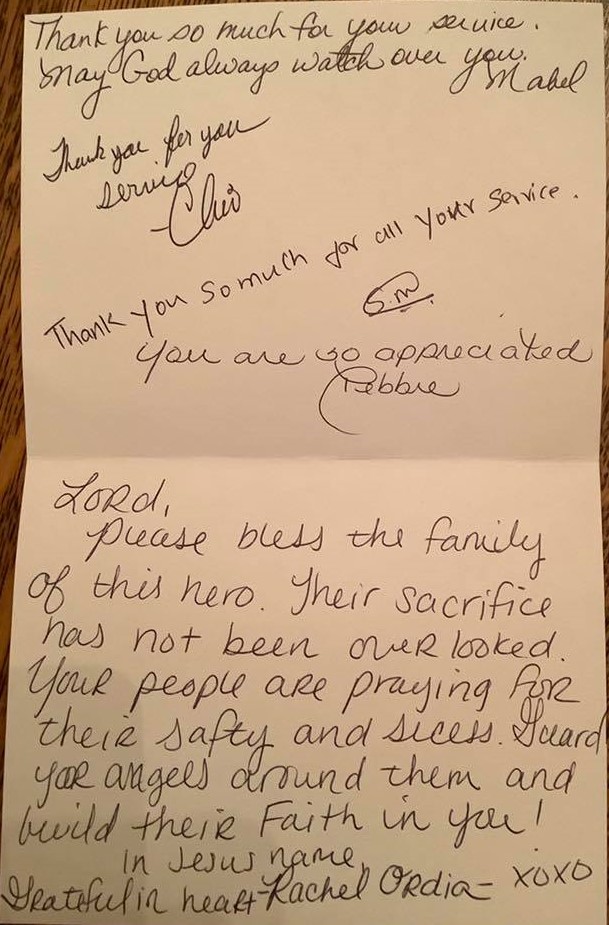 Thank you so much for your service.
May God always watch over you.
Mabel
Thank you for you
service
Thank you so much for all your service.
S.m
You are so appreciated
Debbie
Lord,
please bless the family
of this hero. Their sacrifice
has not been over looked.
Your people are praying for
their safty and sucess. Guard
your angels around them and
build their Faith in you!
in Jesus name,
Grateful in heart - Rachel Ordia - XOXO